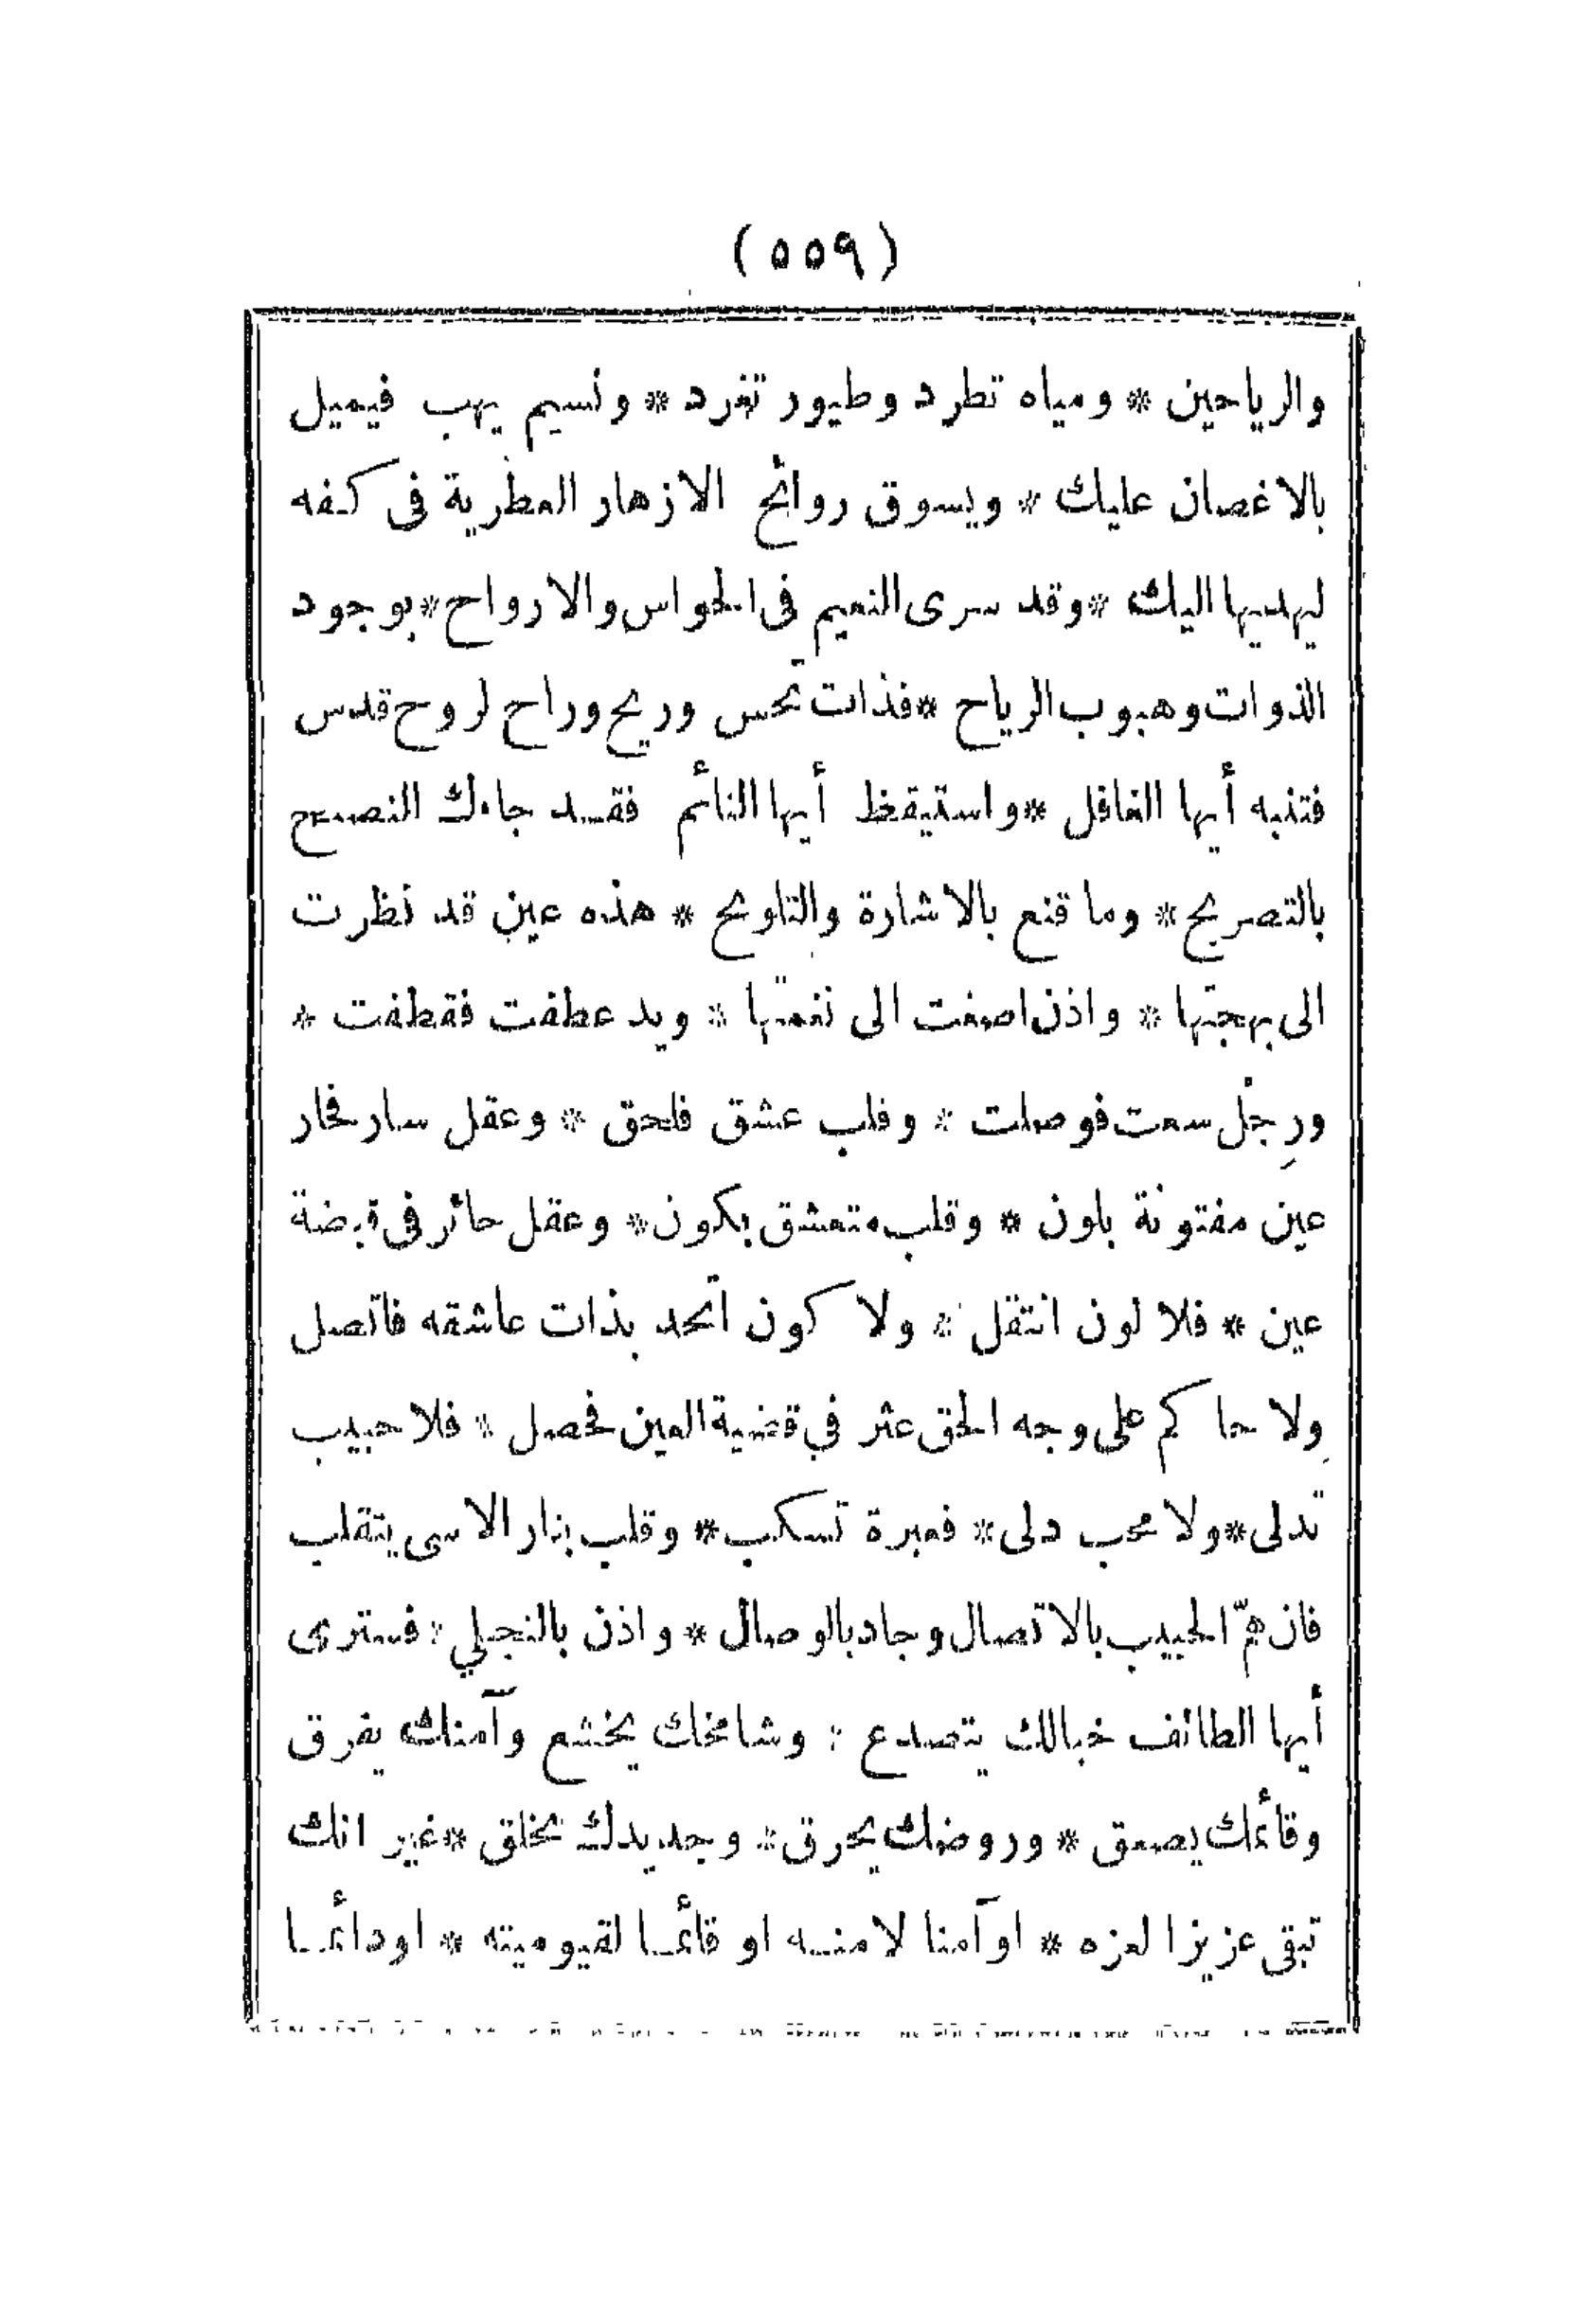 (٥٥٩)
والرياحين * ومياه تطرد وطيور تغرد * ونسيم يهب فيميل
بالاغصان عليك * ويسوق روائح الازهار العطرية فى كفه
ليهديها اليك * وقد سرى النعيم فى الحواس والارواح * بوجود
الذوات وهبوب الرياح * فذات تحس وريح وراح لروح قدس
فتنبه أيها الغافل * واستيقظ أيها النائم فقد جاءك النصيح
بالتصريح * وما قنع بالاشارة والتلويح * هذه عين قد نظرت
الى بهجتها * واذن اصغت الى نغمتها * ويد عطفت فقطفت *
ورِجْل سعت فوصلت * وقلب عشق فلحق * وعقل سار فحار
عين مفتونة بلون * وقلب متعشق بكون * وعقل حائر فى قبضة
عين * فلا لون انتقل * ولا كون اتحد بذات عاشقه فاتصل
ولا حاكم على وجه الحق عثر في قضية العين فحصل * فلا حبيب
تدلى * ولا محب دلى * فعبرة تسكب * وقلب بنار الاسى يتقلب
فان همّ الحبيب بالاتصال وجاد بالوصال * واذن بالتجلي * فسترى
أيها الطائف خبالك يتصدع * وشامخك يخشع وآمنك يفرق
وقائمك يصعق * وروضك يحرق * وجديدك يخلق * غير انك
تبقى عزيزا لعزه * او آمنا لامنه او قائما لقيوميته * اودائما